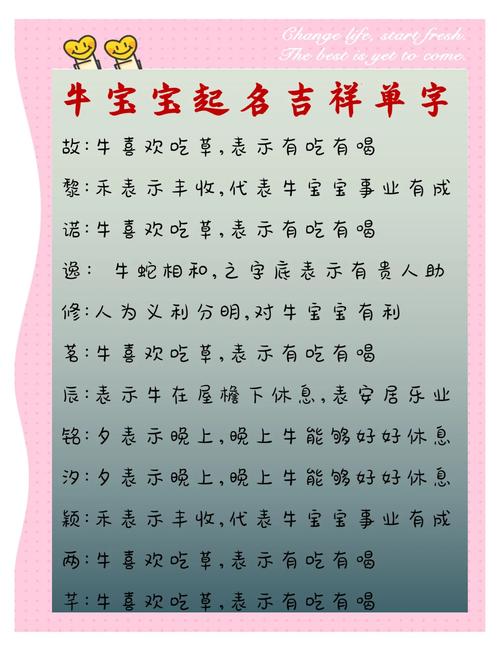 Change life, start fresh.
The best is yet to come.
牛宝宝起名吉祥单字
故:牛喜欢吃草,表示有吃有喝
黎:禾表示丰收,代表牛宝宝事业有成
诺:牛喜欢吃草,表示有吃有喝
逸: 牛蛇相和,之字底表示有贵人助
修:人为义利分明,对牛宝宝有利
茗:牛喜欢吃草,表示有吃有喝
辰:表示牛在屋檐下休息,表安居乐业
铭:夕表示晚上,晚上牛能够好好休息
汐:夕表示晚上,晚上牛能够好好休息
颖:禾表示丰收,代表牛宝宝事业有成
两:牛喜欢吃草,表示有吃有喝
芊:牛喜欢吃草,表示有吃有喝